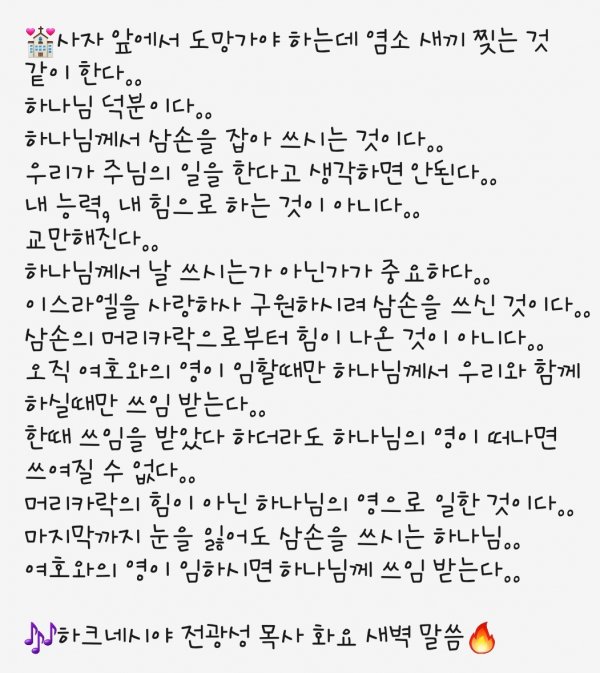 💒사자 앞에서 도망가야 하는데 염소 새끼 찢는 것
같이 한다..
하나님 덕분이다..
하나님께서 삼손을 잡아 쓰시는 것이다..
우리가 주님의 일을 한다고 생각하면 안된다..
내 능력, 내 힘으로 하는 것이 아니다..
교만해진다..
하나님께서 날 쓰시는가 아닌가가 중요하다..
이스라엘을 사랑하사 구원하시려 삼손을 쓰신 것이다..
삼손의 머리카락으로부터 힘이 나온 것이 아니다..
오직 여호와의 영이 임할때만 하나님께서 우리와 함께
하실때만 쓰임 받는다..
한때 쓰임을 받았다 하더라도 하나님의 영이 떠나면
쓰여질 수 없다..
머리카락의 힘이 아닌 하나님의 영으로 일한 것이다..
마지막까지 눈을 잃어도 삼손을 쓰시는 하나님..
여호와의 영이 임하시면 하나님께 쓰임 받는다..

🎶하크네시야 전광성 목사 화요 새벽 말씀🔥